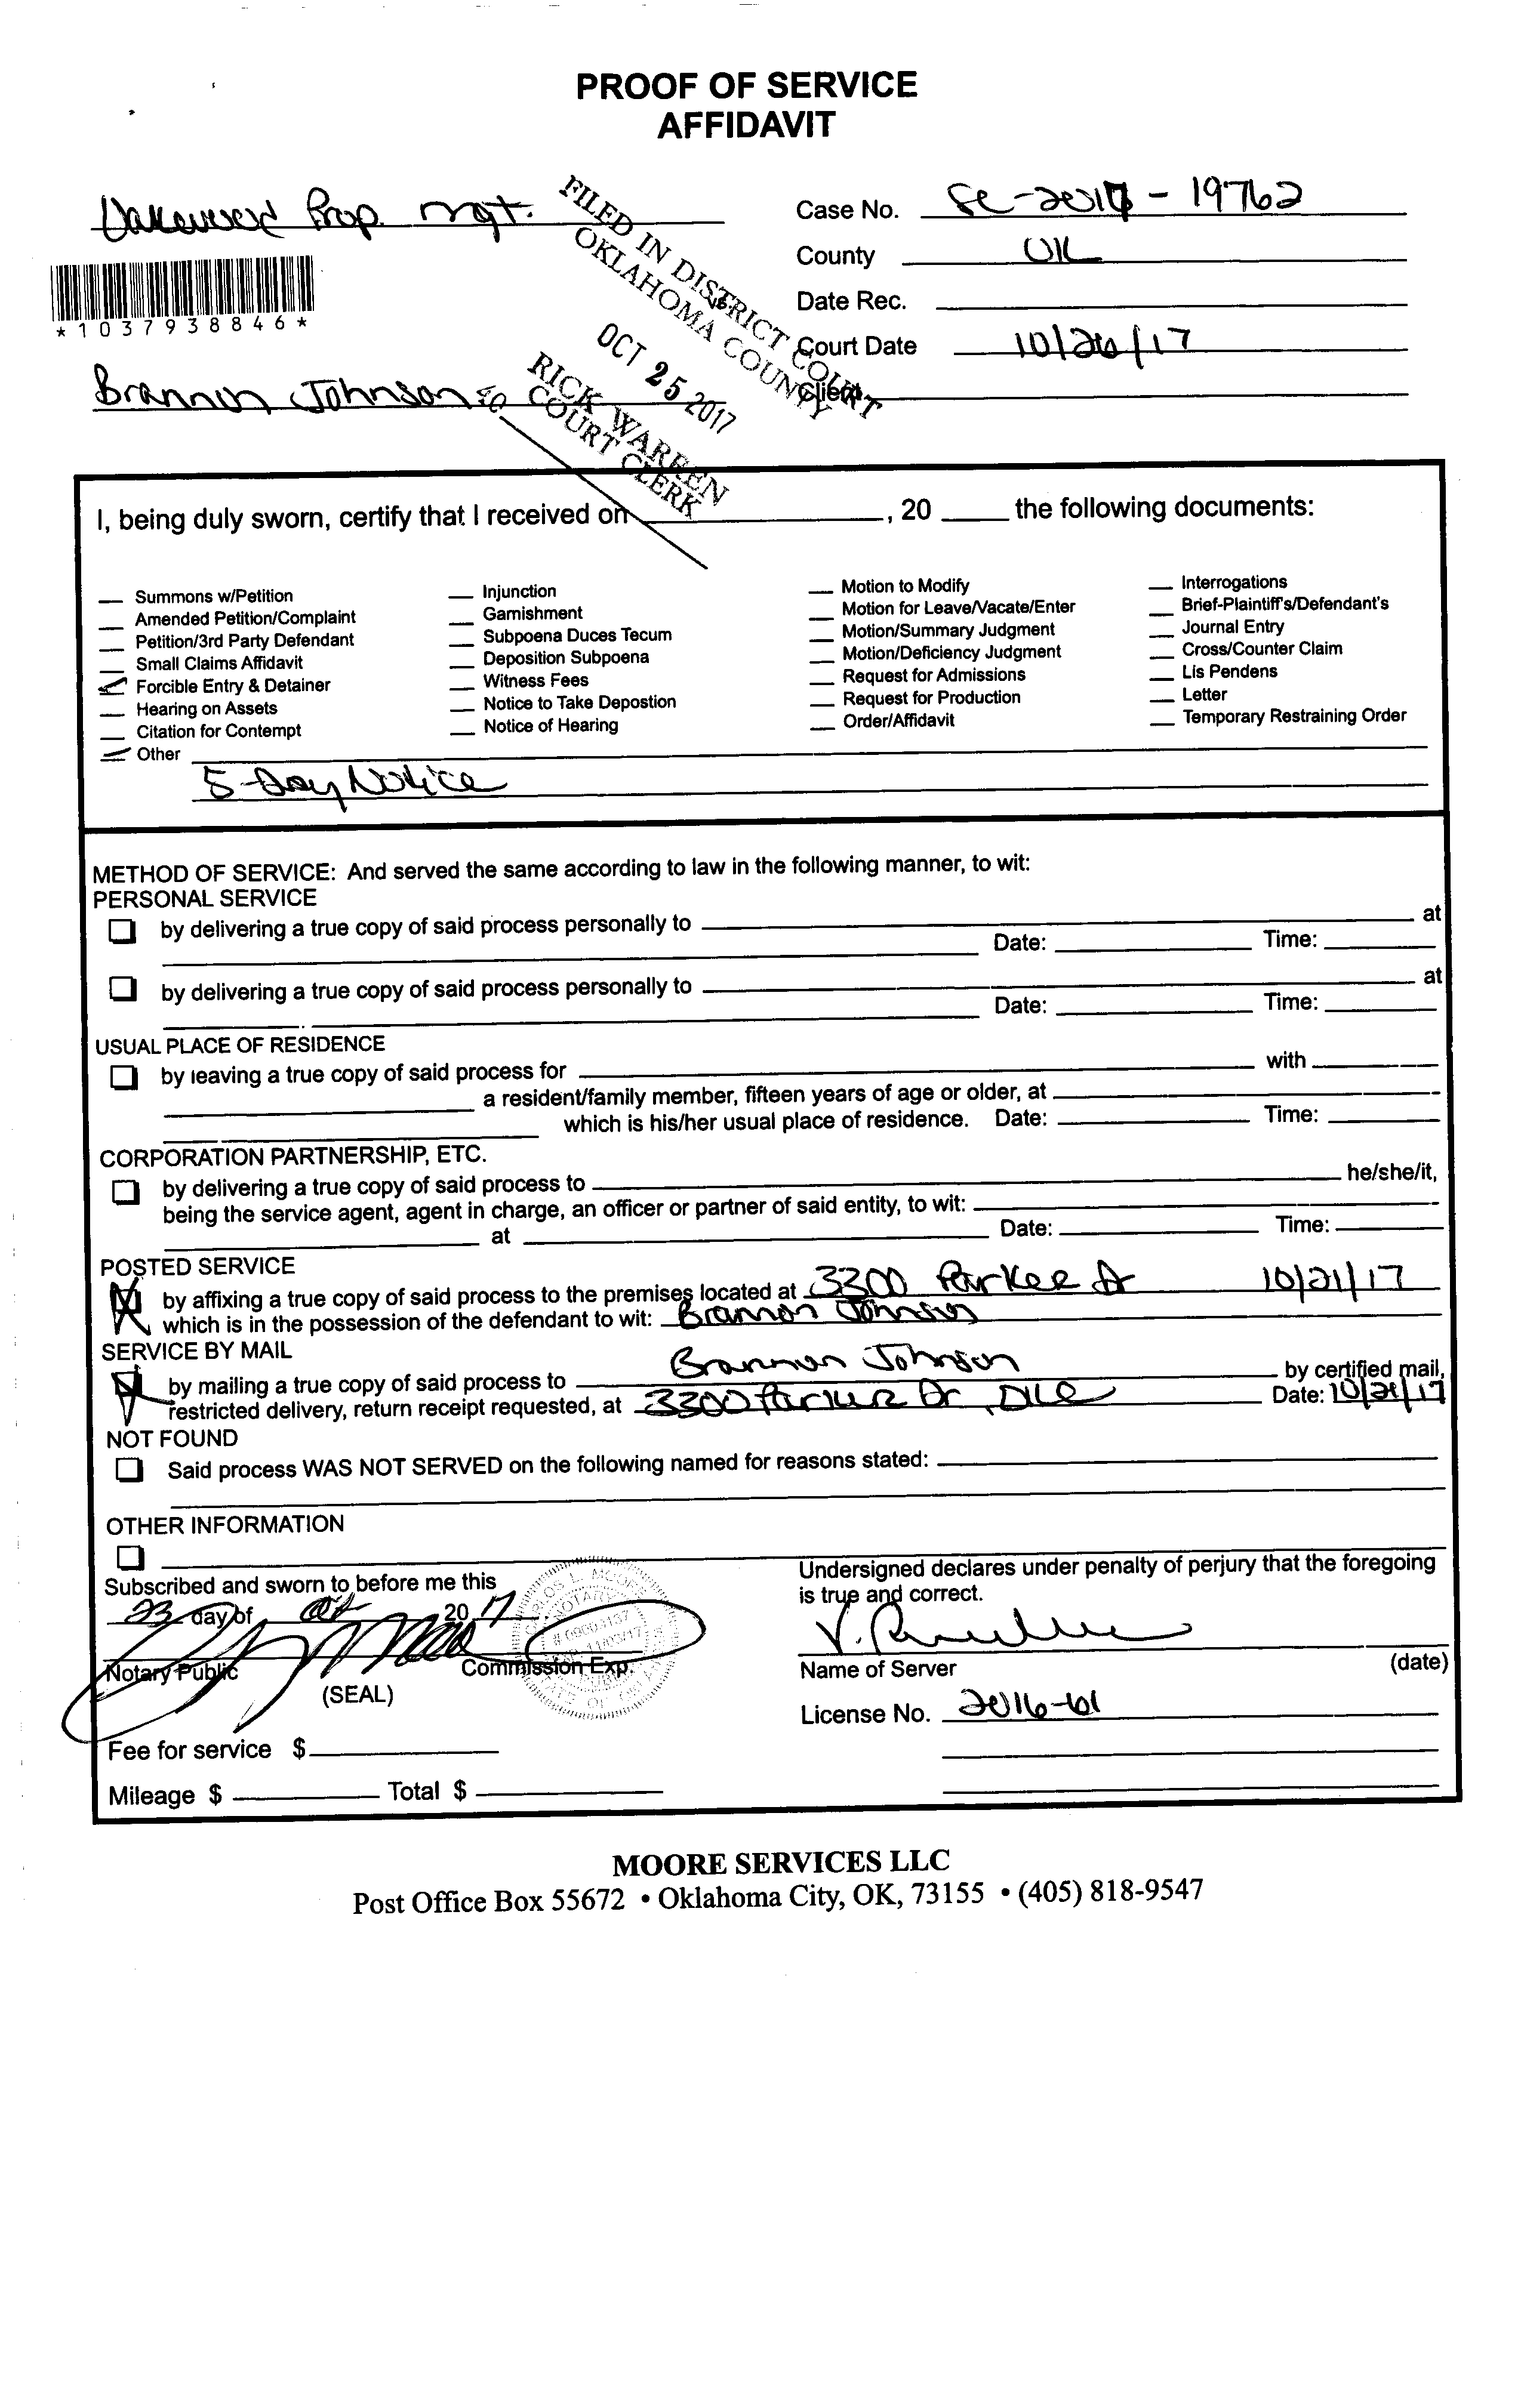 PROOF OF SERVICE
AFFIDAVIT
Oakewood Prop. Mgt.
Case No. SC-2017-19762
County OK
*1037938846*
Date Rec.
vs
Court Date 10/26/17
Brannon Johnson
Client
FILED IN DISTRICT COURT
OKLAHOMA COUNTY
OCT 25 2017
RICK WARREN
COURT CLERK
40
I, being duly sworn, certify that I received on , 20 the following documents:
Summons w/Petition
Amended Petition/Complaint
Petition/3rd Party Defendant
Small Claims Affidavit
Forcible Entry & Detainer
Hearing on Assets
Citation for Contempt
Other
Injunction
Garnishment
Subpoena Duces Tecum
Deposition Subpoena
Witness Fees
Notice to Take Depostion
Notice of Hearing
Motion to Modify
Motion for Leave/Vacate/Enter
Motion/Summary Judgment
Motion/Deficiency Judgment
Request for Admissions
Request for Production
Order/Affidavit
Interrogations
Brief-Plaintiff's/Defendant's
Journal Entry
Cross/Counter Claim
Lis Pendens
Letter
Temporary Restraining Order
5-Day Notice
METHOD OF SERVICE: And served the same according to law in the following manner, to wit:
PERSONAL SERVICE
by delivering a true copy of said process personally to at
Date: Time:
by delivering a true copy of said process personally to at
Date: Time:
USUAL PLACE OF RESIDENCE
by leaving a true copy of said process for with
a resident/family member, fifteen years of age or older, at
which is his/her usual place of residence. Date: Time:
CORPORATION PARTNERSHIP, ETC.
by delivering a true copy of said process to he/she/it,
being the service agent, agent in charge, an officer or partner of said entity, to wit:
at Date: Time:
POSTED SERVICE
by affixing a true copy of said process to the premises located at 3300 Parker Dr 10/21/17
which is in the possession of the defendant to wit: Brannon Johnson
SERVICE BY MAIL
by mailing a true copy of said process to Brannon Johnson by certified mail,
restricted delivery, return receipt requested, at 3300 Parker Dr, Date: 10/21/17
NOT FOUND
Said process WAS NOT SERVED on the following named for reasons stated:
OTHER INFORMATION
Subscribed and sworn to before me this
23 day of Oct 2017
Notary Public Commission Exp.
(SEAL)
CARLOS L. MOORE
NOTARY
# 09003137
EXP. 11/03/17
PUBLIC
STATE OF OKLAHOMA
Undersigned declares under penalty of perjury that the foregoing
is true and correct.
Name of Server (date)
License No. 2016-61
Fee for service $
Mileage $ Total $
MOORE SERVICES LLC
Post Office Box 55672 • Oklahoma City, OK, 73155 • (405) 818-9547